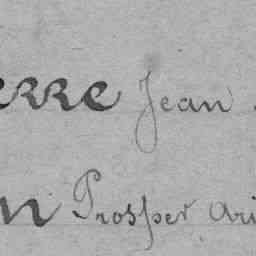 erre Jean
n Prosper Ari